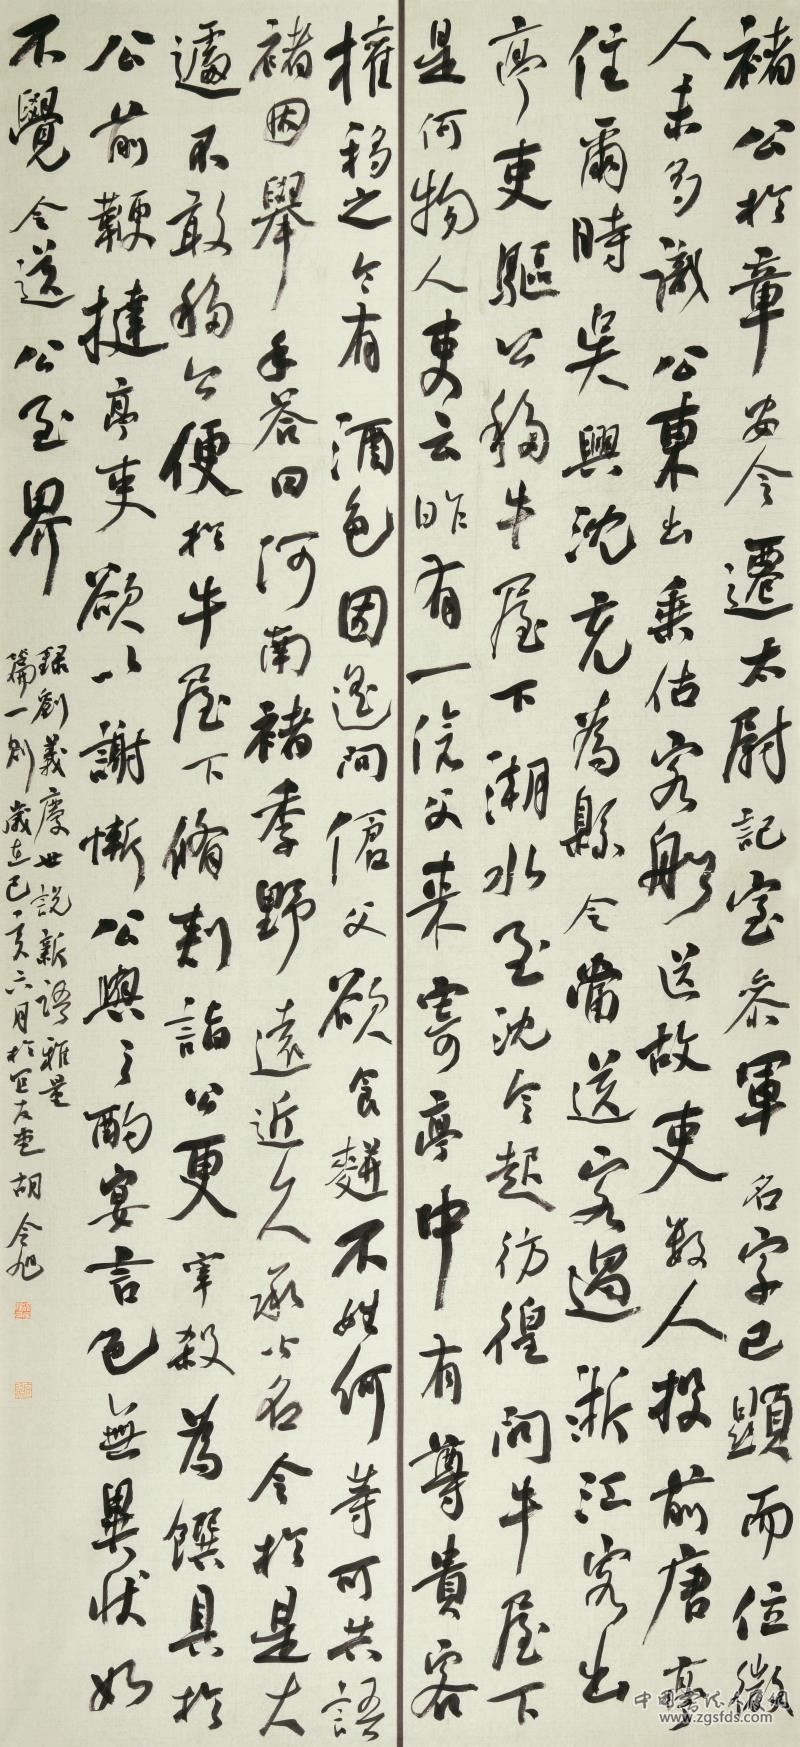 褚公於章安令遷太尉記室參軍名字已顯而位微
人未多識公東出乘估客船送故吏數人投前唐亭
住爾時吳興沈充為縣令當送客過浙江客出
亭吏驅公移牛屋下潮水至沈令起彷徨問牛屋下
是何物人吏云昨有一傖父來寄亭中有尊貴客
權移之令有酒色因遙問傖父欲食麰不姓何等可共語
褚因舉手答曰河南褚季野遠近久承公名令於是大
遽不敢移公便於牛屋下脩刺詣公更宰殺為饌具於
公前鞭撻亭吏欲以謝慚公與之酌宴言色無異狀如
不覺令送公至界
錄劉義慶世說新語雅量
篇一則歲在己亥六月於正友堂胡令旭
中国书法家园网
www.zgsfds.com